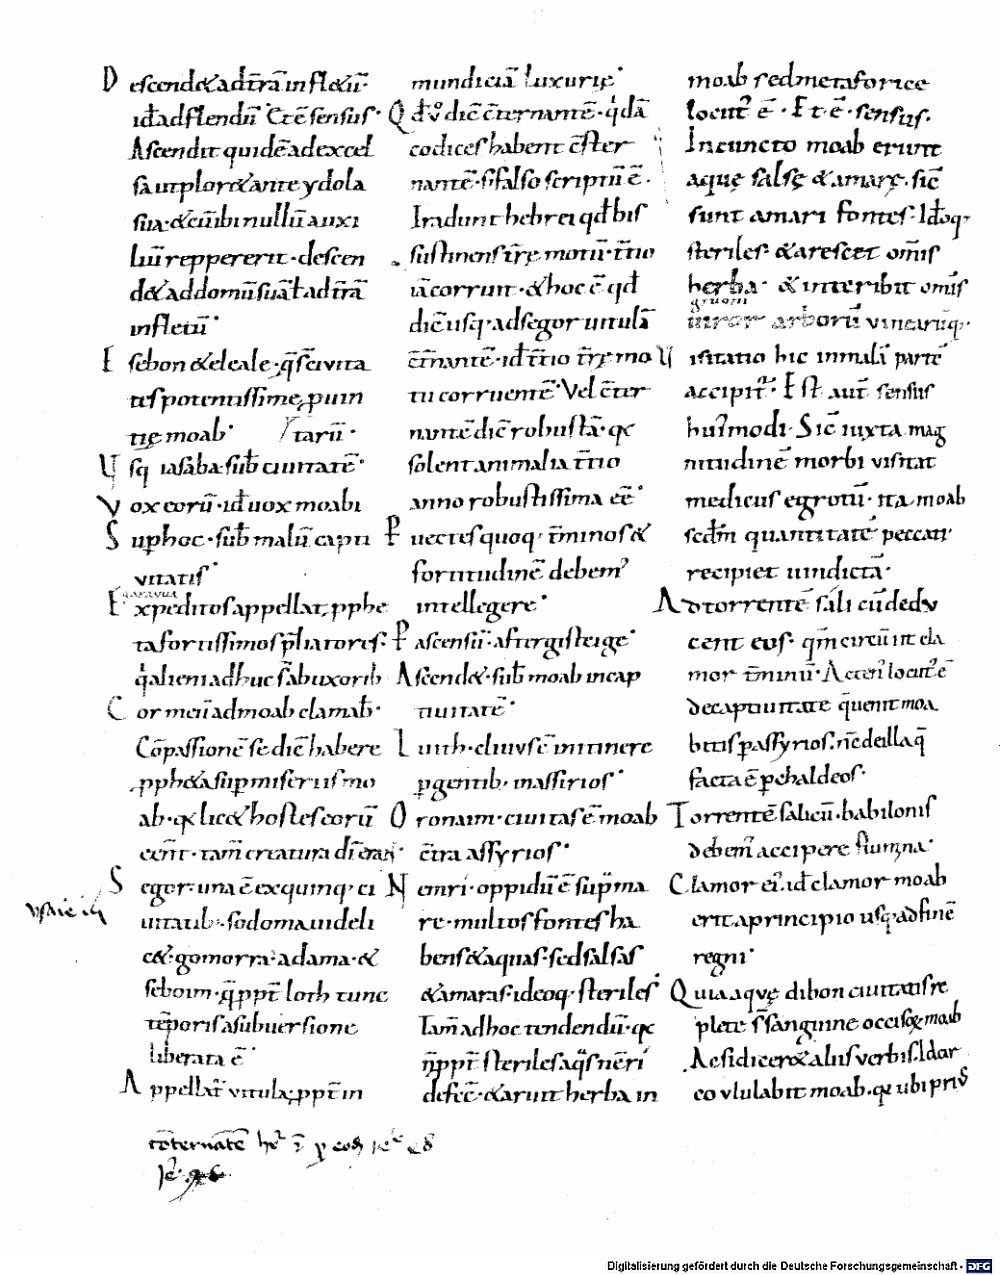 Descend& adt̄rā infl&ū·
id̄ adflendū· Et ē sensus·
Ascendit quidē ad excel
sa ut plor& ante ydola
sua· & cū ibi nullū auxi
liū reppererit· descen
d& ad domū suā t̄ ad t̄rā
infletū·
Esebon & eleale· q̄ s̄ civita
tes potentissimę, puin
tię moab· tarū·
Usq iasaba· sub̄ civitatē·
Vox eorū· id̄ uox moabi
Sup hoc· sub̄ malū capti
vitatis·
Expeditos appellat, pphe
ta fortissimos p̄liatores·
qͥ alieni adhuc s̄ ab uxorib
Cor meū ad moab clamab̄·
Cōpassionē se dic̄ habere
pph&a sup miseriis mo
ab· q& lic& hostes eorū
eēnt· tam̄ creatura dī eran·
Segor· una ē ex quinq· ci
uitatib· sodoma uideli
c&· gomorra· adama· &
seboim· q̄ ppt̄ loth tunc
tēporis a subuersione
liberata ē·
Appellat̄ vitula, ppt̄ in
mundiciā luxurię·
Qd̄ v̊ dic̄ c̄ternantē· qͥdā
codices habent c̄ster
nantē· s; falso scriptū ē·
Tradunt hebrei qd̄ bis
sustinens t̄rę motū· t̄tio
iā corruit· & hoc ē qd̄
dic̄ usq· ad segor uitulā
c̄t̄nantē· id̄ t̄tio t̄rę mo
tu corruentē· Vel c̄ter
nantē dic̄ robustā· qc
solent animalia t̄tio
anno robustissima eē·
P uectes quoq· t̄minos &
fortitudinē debem᾽
intellegere·
P ascensū· afrigisteige·
Ascend&· sub̄ moab in cap
tiuitatē·
Luith· clivus ē in itinere
pgentib· in assirios·
Oronaim· civitas ē moab
c̄tra assyrios·
Nemri· oppidū ē sup ma
re· multos fontes ha
bens & aquas· sed salsas
& amaras· ideoq· steriles
Tam̄ ad hoc tendendū· qc
n̄ ppt̄ steriles aq̄s n̄ eri
defec̄· & aruit herba in
moab sed metaforice
locut᾽ ē· Et ē· sensus·
In cuncto moab erunt
aquę salsę & amarę· sic̄
sunt amari fontes· Id̄oq·
steriles· & arescet om̄is
herba· & interibit om̄is
arborū vinearūq·
Uisitatio hic in malā partē
accipit᾽· Est aut̄ sensus
hui᾽modi· Sic̄ iuxta mag
nitudinē morbi visitat
medicus egrotū· ita moab
scd̄m quantitatē peccati
recipiet uindictā·
Ad torrentē salicū dedu
cent eos· qm̄ circuiit cla
mor t̄minū· locut᾽ ē
de captiuitate q̄ uenit moa
bitis p assyrios· n̄ de illa q̄
facta ē p chaldeos·
Torrentē salicū· babilonis
debem᾽ accipere flumina·
Clamor ei᾽· id̄ clamor moab
erit a principio usq· ad finē
regni·
Quia aquę dibon civitatis re
plete s̄ sanguine occisoꝝ moab
Ac si dicer& aliis verbis· Idar
co vlulabit moab· q& ubi pri᾽
ysaie